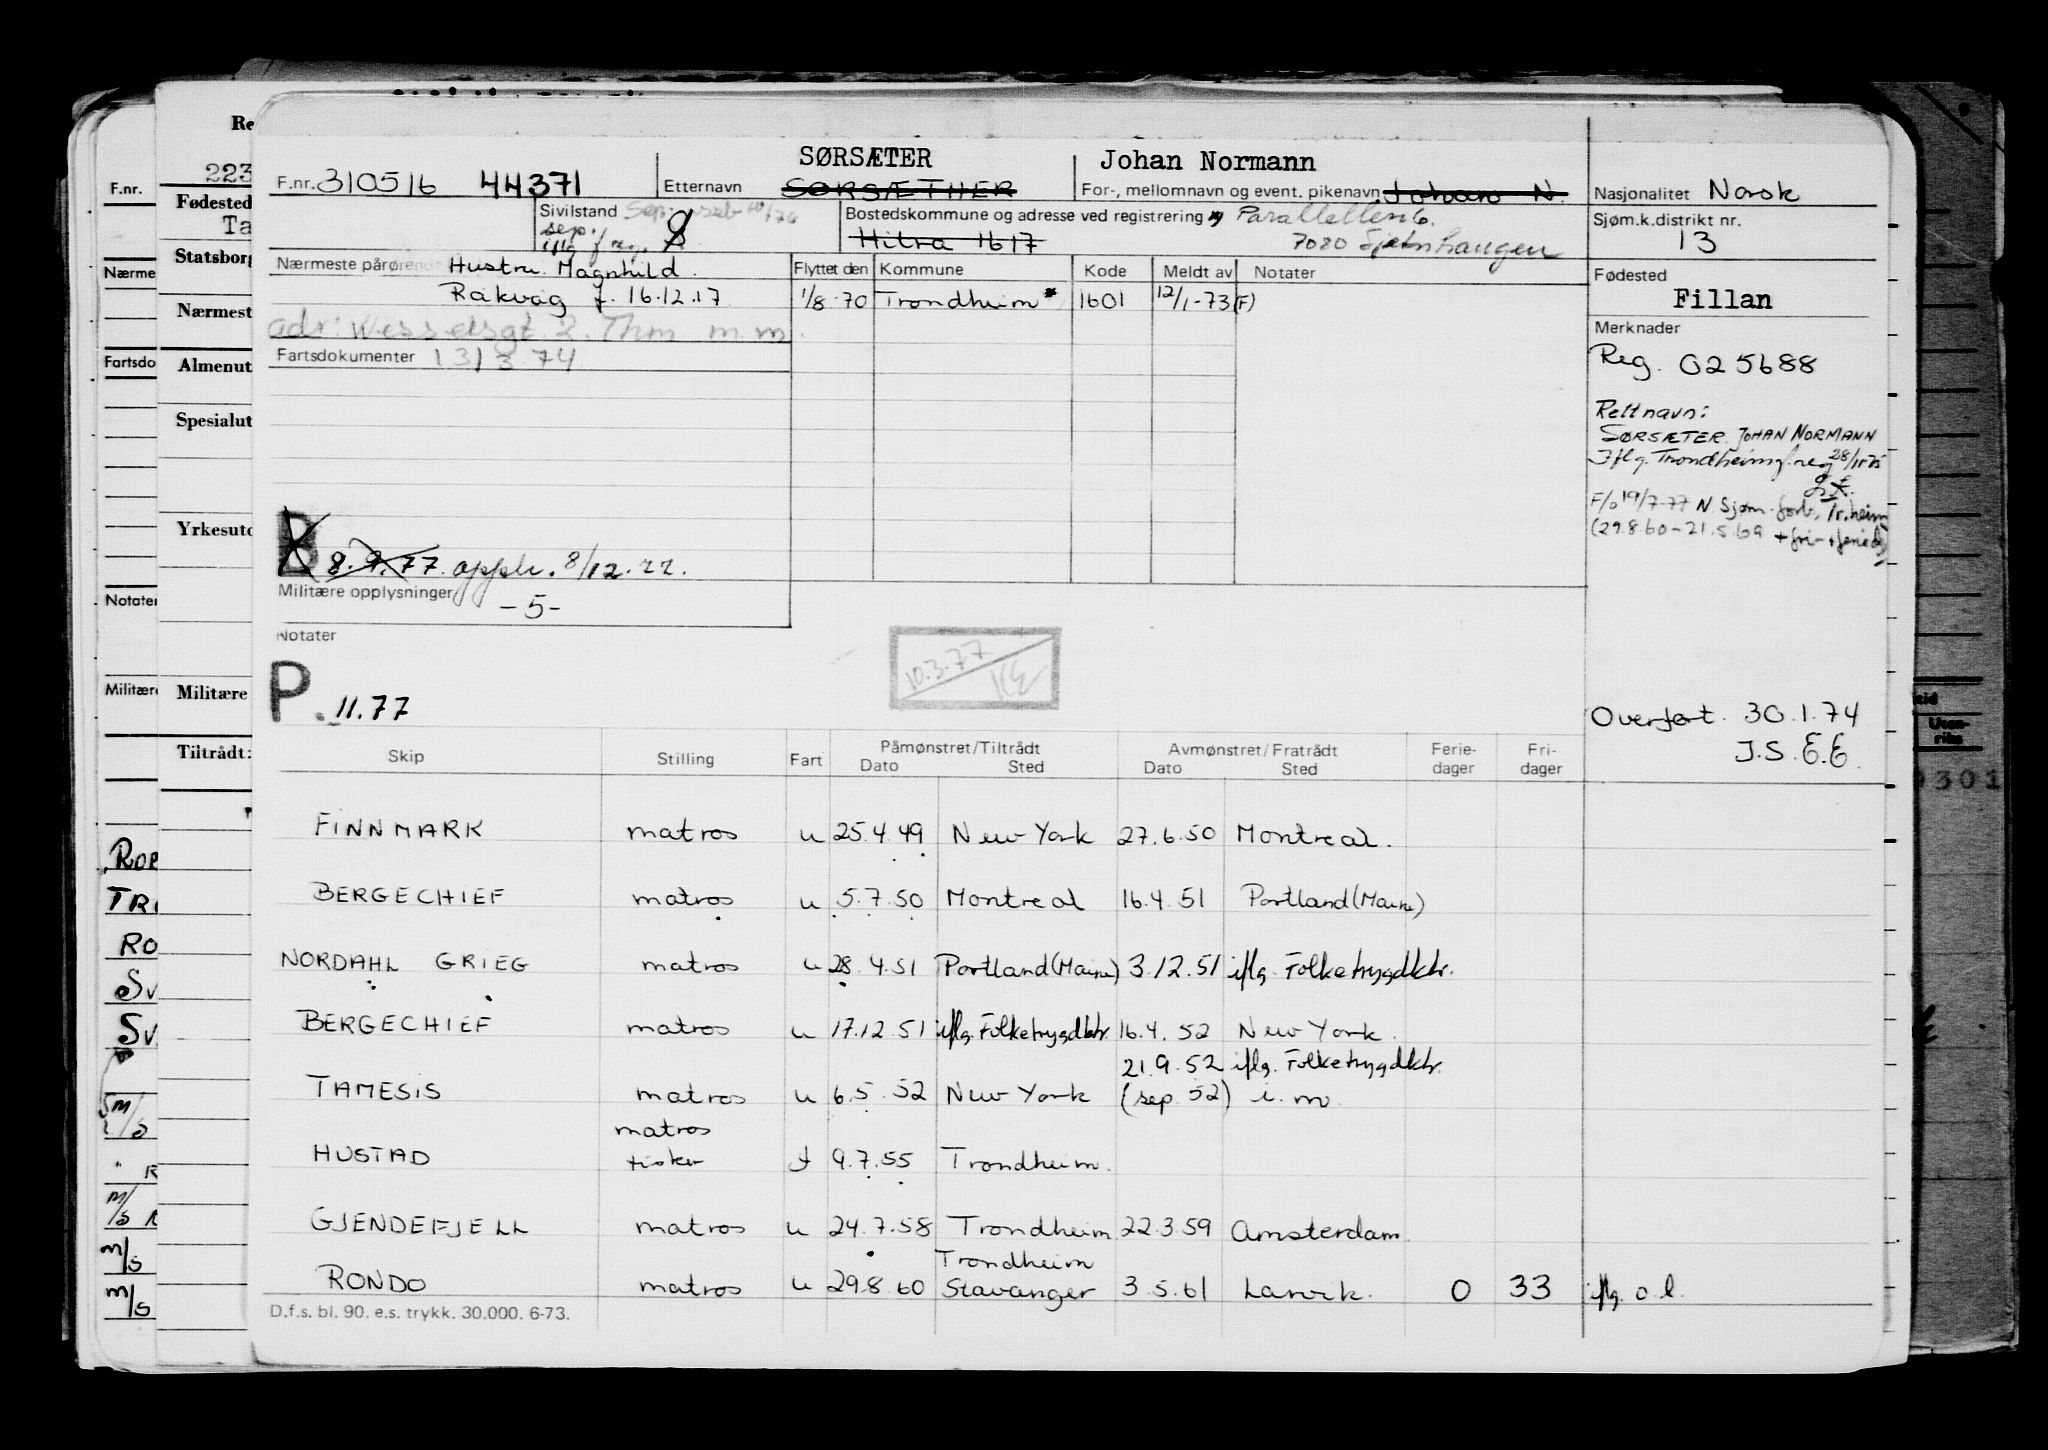 F.nr. 310516 44371
Etternavn SØRSÆTER
SØRSÆTHER
Johan Normann
For-, mellomnavn og event. pikenavn Johan N.
Nasjonalitet Norsk
Sivilstand Sep.
sep.
iflg f reg.
Bostedskommune og adresse ved registrering Parallellen 6.
Hitra 1617 7080 Sjetnhaugen
Sjøm.k.distrikt nr.
13
Nærmeste pårørende Hustru Magnhild
Råkvåg f. 16.12.17
adr: Wesselsgt. 2. Thm m.m.
Fartsdokumenter 13/3 74
Flyttet den Kommune Kode Meldt av Notater
1/8-70 Trondheim* 1601 12/1-73(F)
Fødested
Fillan
Merknader
Reg. 025688
Rett navn:
SØRSÆTER, JOHAN NORMANN
Iflg. Trondheim f.reg 28/11-75
F/o 19/7-77 N. Sjøm.forb., Tr.heim
(29.8.60-21.5.69 + fri- + feried)
B 8.9.77. oppl. 8/12.77.
Militære opplysninger
-5-
Notater
P. 11.77
10.3.77
KE
Overført. 30.1.74
J.S.E.E.
Skip Stilling Fart Påmønstret/Tiltrådt Avmønstret/Fratrådt Ferie- Fri-
Dato Sted Dato Sted dager dager
FINNMARK matros u 25.4.49 New York 27.6.50 Montreal.
BERGECHIEF matros u 5.7.50 Montreal 16.4.51 Portland (Maine)
NORDAHL GRIEG matros u 28.4.51 Portland (Maine) 3.12.51 iflg. Folketrygdktr.
BERGECHIEF matros u 17.12.51 iflg. Folketrygdktr. 16.4.52 New York.
21.9.52 iflg. Folketrygdktr.
TAMESIS matros u 6.5.52 New York (sep 52) i.m.
matros
HUSTAD fisker f 9.7.55 Trondheim.
GJENDEFJELL matros u 24.7.58 Trondheim 22.3.59 Amsterdam
Trondheim
RONDO matros u 29.8.60 Stavanger 3.5.61 Larvik. 0 33 iflg. o.l.
D.f.s. bl. 90. e.s. trykk. 30.000. 6-73.
Re
223
Fødested
Ta
Statsborg
Nærmest
Almenut
Spesialut
Yrkesutd
Militære
Tiltrådt:
F.nr.
Nærme
Fartsdo
Notater
Militære
ROP
TRI
RO
Sv
Sv
M/S
R
M/S
M/S
M/S
Uten-
riks
0301